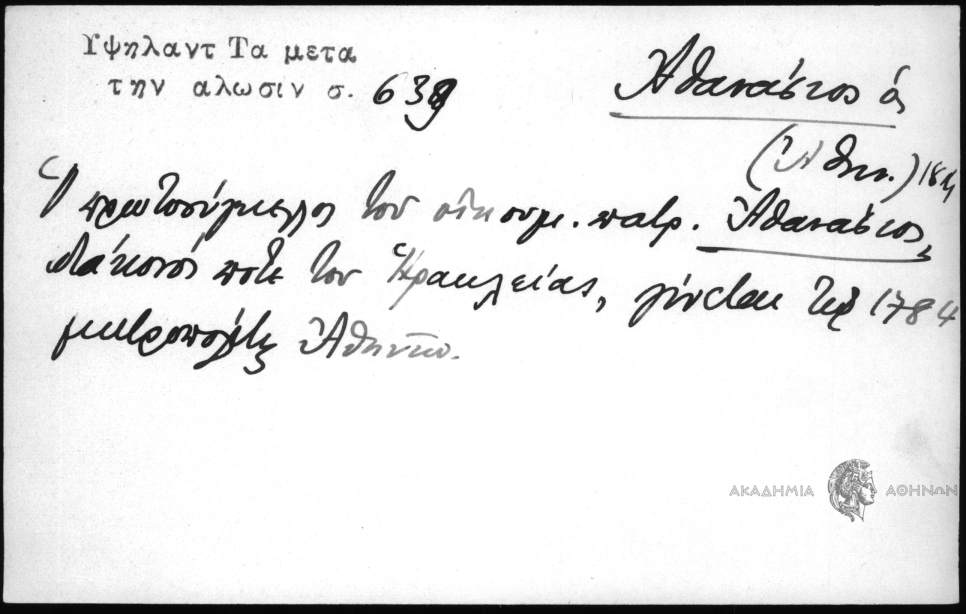 Υψηλαντ Τα μετα
την αλωσιν σ. 639
Ἀθανάσιος ὁ
(Ἀθην.) 18
Ὁ πρωτοσύγκελλος τοῦ οἰκουμ. πατρ. Ἀθανάσιος,
διάκονός ποτε τοῦ Ἡρακλείας, γίνεται τῷ 1784
μητροπολίτης Ἀθηνῶν.
ΑΚΑΔΗΜΙΑ ΑΘΗΝΩΝ